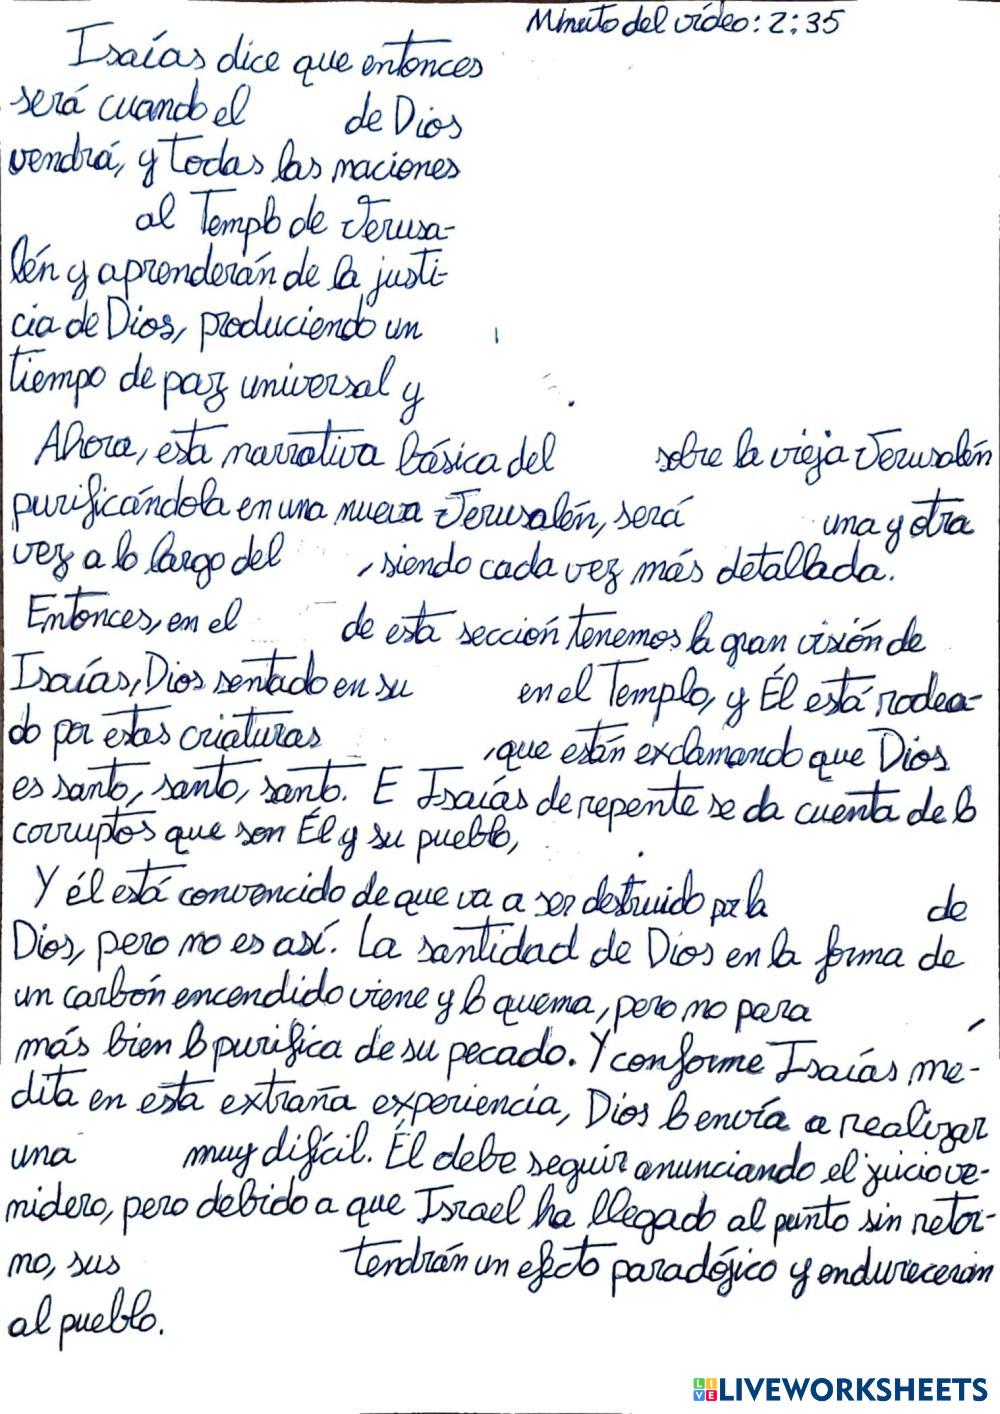 Minuto del vídeo: 2:35
Isaías dice que entonces
será cuando el de Dios
vendrá, y todas las naciones
al Templo de Jerusa-
lén y aprenderán de la justi-
cia de Dios, produciendo un
tiempo de paz universal y .
Ahora, esta narrativa básica del sobre la vieja Jerusalén
purificándola en una nueva Jerusalén, será una y otra
vez a lo largo del , siendo cada vez más detallada.
Entonces, en el de esta sección tenemos la gran visión de
Isaías, Dios sentado en su en el Templo, y Él está rodea-
do por estas criaturas , que están exclamando que Dios
es santo, santo, santo. E Isaías de repente se da cuenta de lo
corruptos que son Él y su pueblo, .
Y él está convencido de que va a ser destruido por la de
Dios, pero no es así. La santidad de Dios en la forma de
un carbón encendido viene y lo quema, pero no para ,
más bien lo purifica de su pecado. Y conforme Isaías me-
dita en esta extraña experiencia, Dios lo envía a realizar
una muy difícil. Él debe seguir anunciando el juicio ve-
nidero, pero debido a que Israel ha llegado al punto sin retor-
no, sus tendrán un efecto paradójico y endurecerán
al pueblo.
LIVEWORKSHEETS